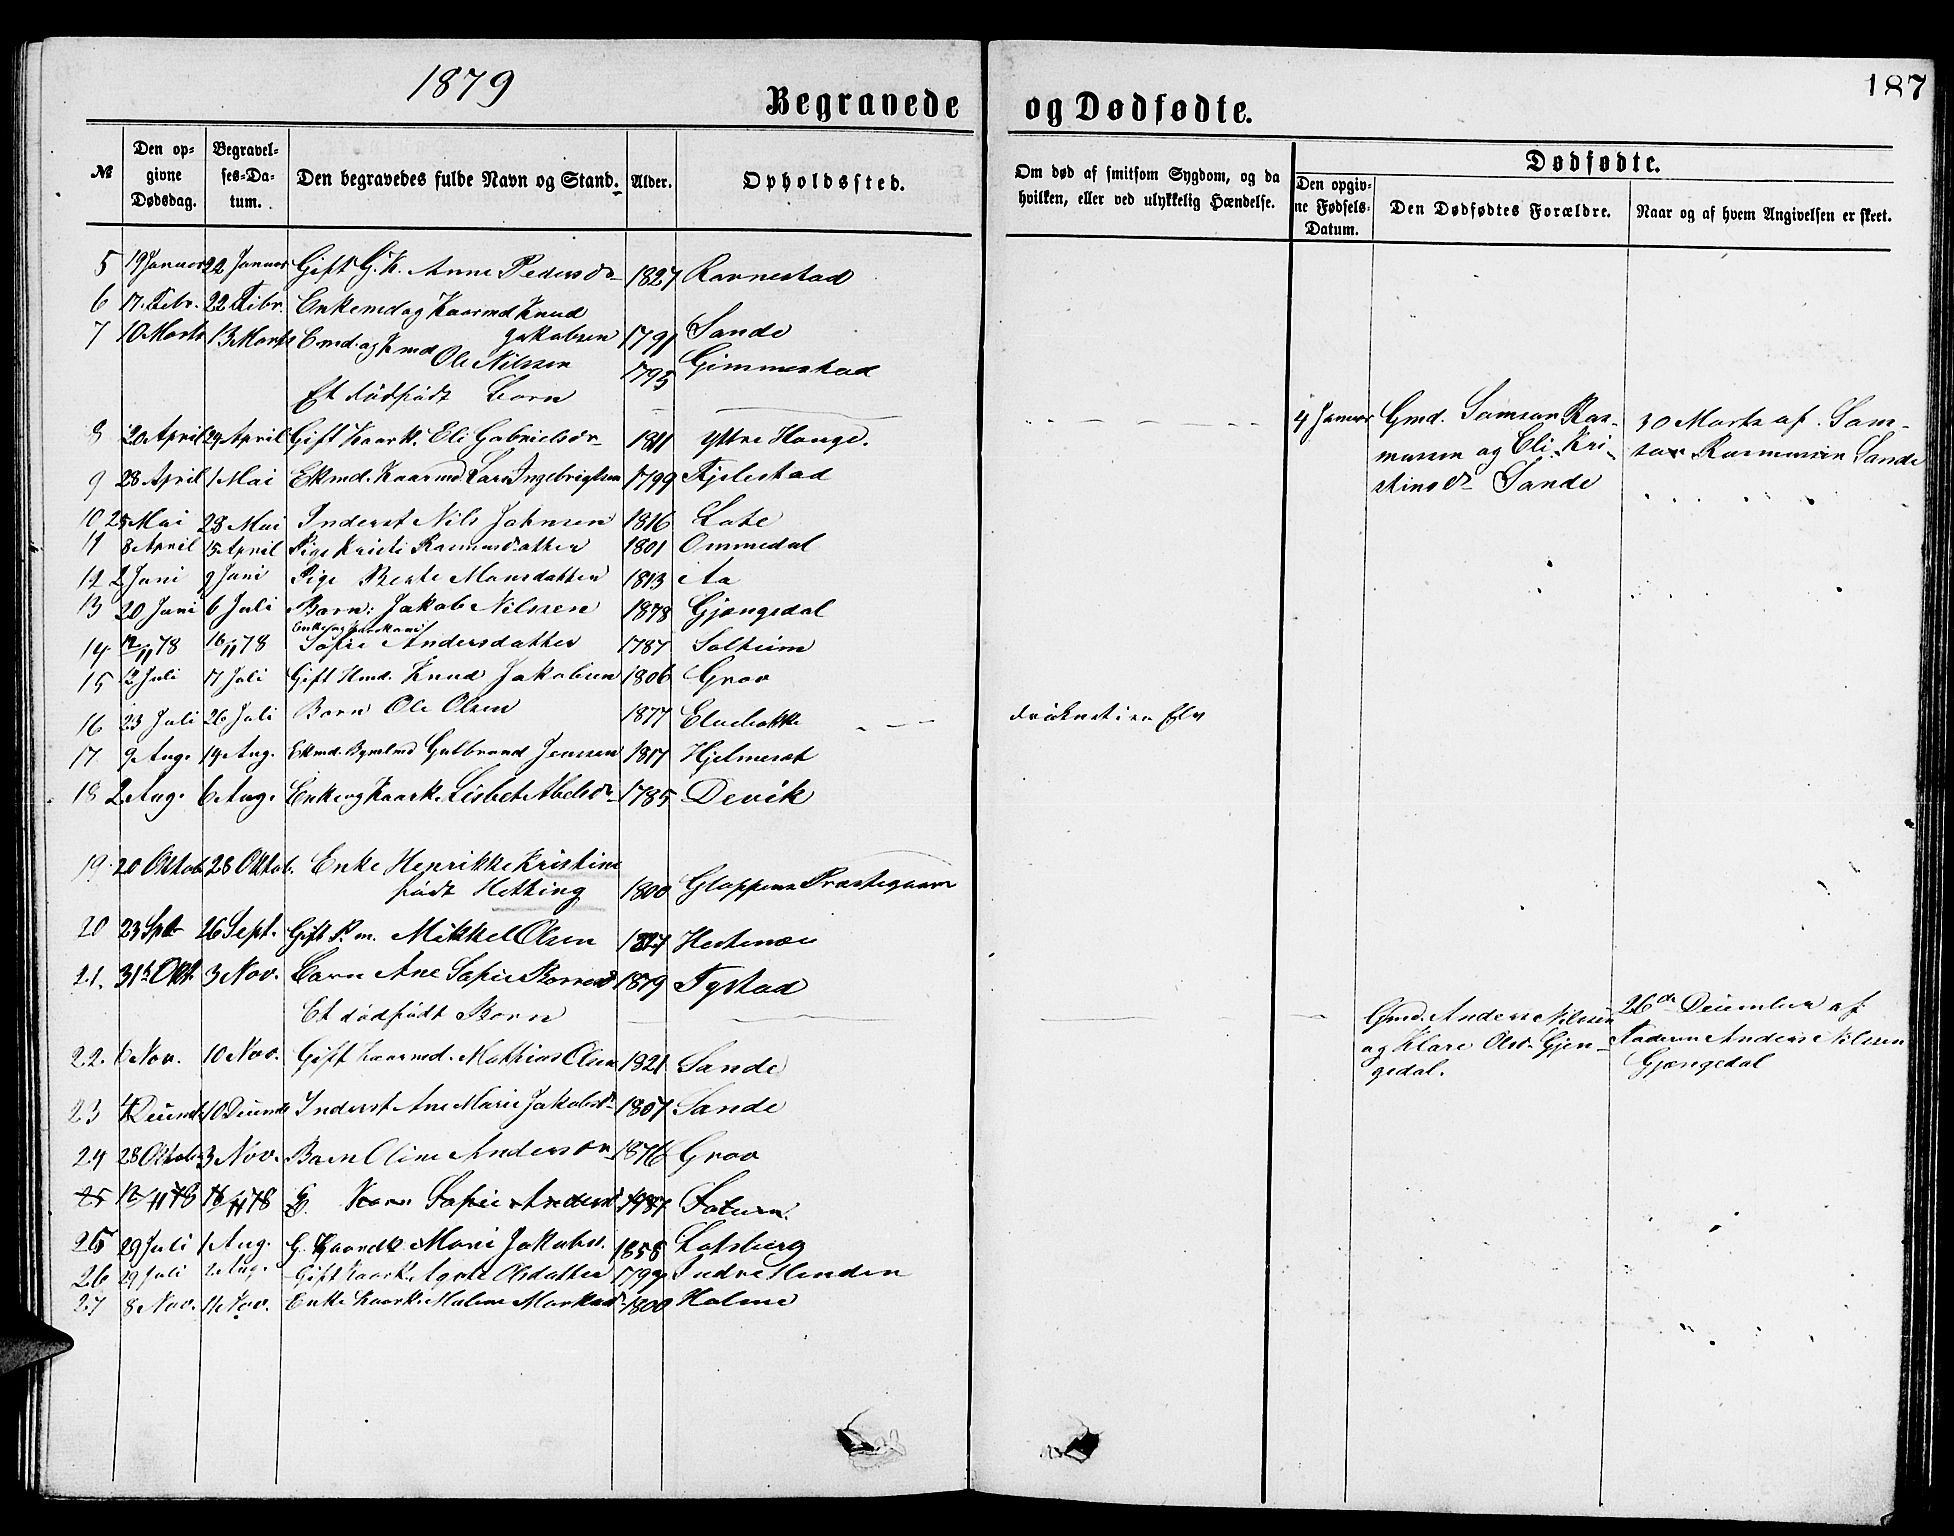 1879
187
Begravede og Dødfødte.
№
Den opgivne Dødsdag.
Begravelses-Datum.
Den begravedes fulde Navn og Stand.
Alder.
Opholdssted.
Om død af smitsom Sygdom, og da hvilken, eller ved ulykkelig Hændelse.
Dødfødte.
Den opgivne Fødsels-Datum.
Den Dødfødtes Forældre.
Naar og af hvem Angivelsen er skeet.
5 19 Januar 22 Januar Gift G. K. Anne Pedersdr 1827 Ravnestad
6 17. Febr. 22 Febr. Enkemd og Kaarmd Knud
Jakobsen 1791 Sande
7 10 Marts 13 Marts E.md. og K.md
Ole Nilssen 1795 Gimmestad
Et dødfødt Barn
4 Januar Gmd. Samson Ras-
mussen og Eli Kri-
stinsdr Sande
30 Marts af Sam-
son Rasmussen Sande
8 20 April 29 April Gift Kaark. Eli Gabrielsdr 1811 Yttre Hauge.
9 28 April 1 Mai Ekmd. Kaarmd Lars Ingebrigtsen 1799 Fjelestad
10 25 Mai 28 Mai Inderst Nils Johnsen 1816 Lote
11 8 April 15 April Pige Kristi Rasmusdatter 1801 Ommedal
12 2 Juni 9 Juni Pige Berte Monsdatter 1813 Aa
13 20 Juni 6 Juli Barn: Jakob Nilssen 1878 Gjengedal
14 12/11 78 16/11 78 Enke og Kaarkone
Sofie Andersdatter 1787 Solheim
15 12 Juli 17 Juli Gift Hmd. Knud Jakobsen 1806 Grov
16 23 Juli 26 Juli Barn Ole Olsen 1877 Elvebakke druknet i en Elv
17. 9 Aug. 14 Aug. Ekmd. Gulbrand Jenssen 1817 Hjelmeset
18 2 Aug. 6 Aug. Enke og Kaark. Lisbet Abelsdr 1785 Devik
19. 20 Oktob. 28 Oktob. Enke Henrikke Kristine
født Hetting 1800 Gloppens Præstegaard
20 23 Spt 26 Sept. Gift P. m. Mikkel Olsen Hestenæs
21. 31te Okt. 3 Nov. Barn Ane Sofie 1879 Tystad
Et dødfødt Barn
Gmd. Anders Nilssen
og Klare Olsdr Gjen-
gedal.
26de December af
Faderen Anders Nilssen
Gjængedal
22. 6 Nov. 10 Nov. Gift Kaarmd. Mathias Olsen 1821 Sande
23 4 Decemb 10 Decemb Inderst Ane Marie Jakobsdr 1807 Sande
24 28 Oktob. 3 Nov. Barn Oline Andersdr 1876 Grov
25 12/11 78 16/11 78 Sofie Andersd 1787
25 29 Juli 1 Aug. G. Mari Jakobsd. 1858 Lotsberg
26 29 Juli 2 Aug. Gift Kaark. Agate Olsdatter 1799 Indre Henden
27 8 Nov. 11 Nov. Enke Kaark. Malene Markusd 1800 Holme